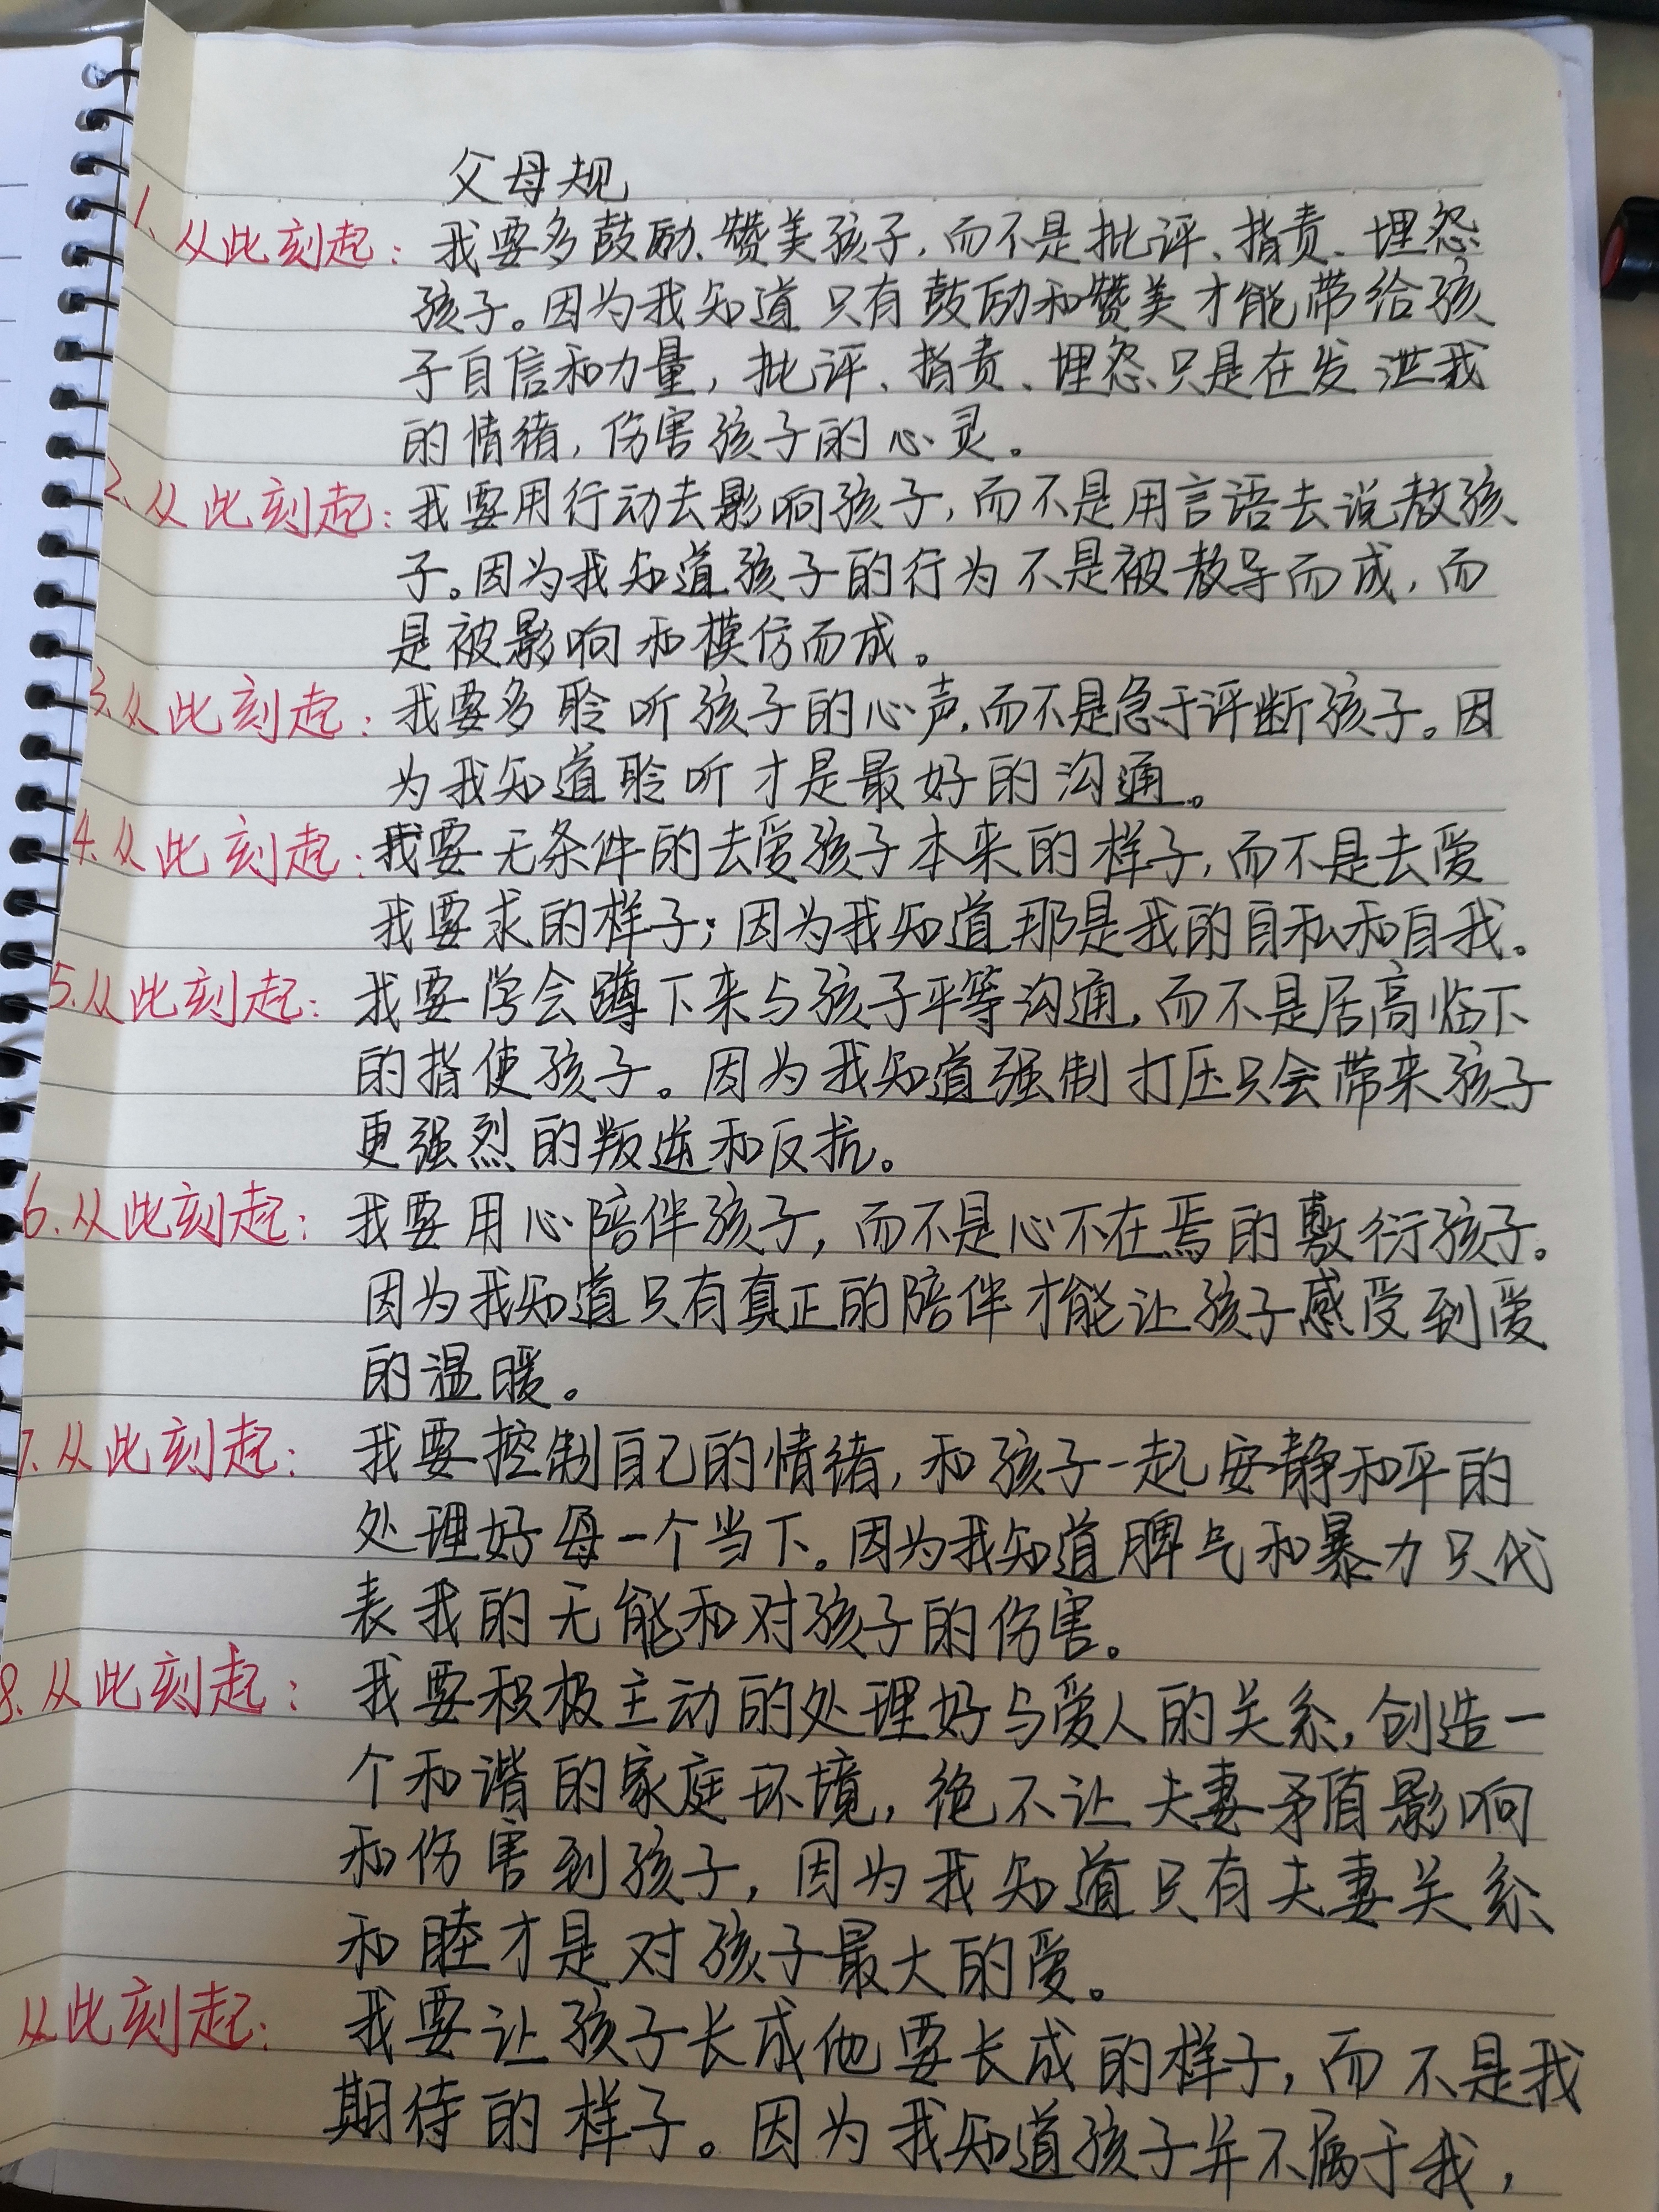 父母规
1.从此刻起：我要多鼓励、赞美孩子，而不是批评、指责、埋怨
孩子。因为我知道只有鼓励和赞美才能带给孩
子自信和力量，批评、指责、埋怨只是在发泄我
的情绪，伤害孩子的心灵。
2.从此刻起：我要用行动去影响孩子，而不是用言语去说教孩
子。因为我知道孩子的行为不是被教导而成，而
是被影响和模仿而成。
3.从此刻起：我要多聆听孩子的心声，而不是急于评断孩子。因
为我知道聆听才是最好的沟通。
4.从此刻起：我要无条件的去爱孩子本来的样子，而不是去爱
我要求的样子；因为我知道那是我的自私和自我。
5.从此刻起：我要学会蹲下来与孩子平等沟通，而不是居高临下
的指使孩子。因为我知道强制打压只会带来孩子
更强烈的叛逆和反抗。
6.从此刻起：我要用心陪伴孩子，而不是心不在焉的敷衍孩子。
因为我知道只有真正的陪伴才能让孩子感受到爱
的温暖。
7.从此刻起：我要控制自己的情绪，和孩子一起安静和平的
处理好每一个当下。因为我知道脾气和暴力只代
表我的无能和对孩子的伤害。
8.从此刻起：我要积极主动的处理好与爱人的关系，创造一
个和谐的家庭环境，绝不让夫妻矛盾影响
和伤害到孩子，因为我知道只有夫妻关系
和睦才是对孩子最大的爱。
从此刻起：我要让孩子长成他要长成的样子，而不是我
期待的样子。因为我知道孩子并不属于我，